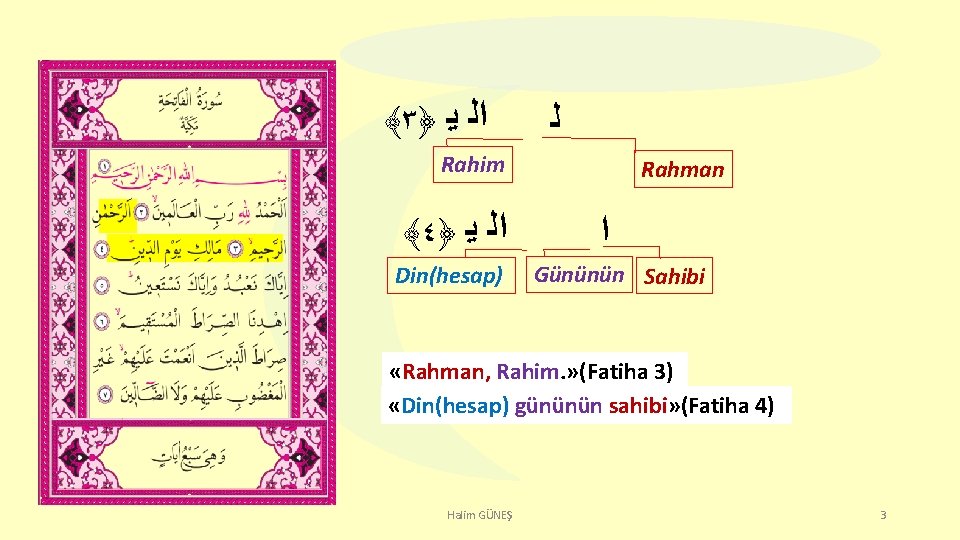 سُورَةُ الْفَاتِحَةِ
مَكِّيَّةٌ
بِسْمِ اللهِ الرَّحْمٰنِ الرَّحِيمِ ﴿١﴾
اَلْحَمْدُ لِلّٰهِ رَبِّ الْعَالَمِينَ ﴿٢﴾ اَلرَّحْمٰنِ
الرَّحِيمِ ﴿٣﴾ مَالِكِ يَوْمِ الدِّينِ ﴿٤﴾
اِيَّاكَ نَعْبُدُ وَاِيَّاكَ نَسْتَعِينُ ﴿٥﴾
اِهْدِنَا الصِّرَاطَ الْمُسْتَقِيمَ ﴿٦﴾
صِرَاطَ الَّذِينَ اَنْعَمْتَ عَلَيْهِمْ غَيْرِ
الْمَغْضُوبِ عَلَيْهِمْ وَلَا الضَّالِّينَ ﴿٧﴾
وَهِيَ سَبْعُ اٰيَاتٍ
ﻟ اﻟ ﻳ ﴿٣﴾
Rahim Rahman
ا اﻟ ﻳ ﴿٤﴾
Din(hesap) Gününün Sahibi
«Rahman, Rahim.»(Fatiha 3)
«Din(hesap) gününün sahibi»(Fatiha 4)
Halim GÜNEŞ 3